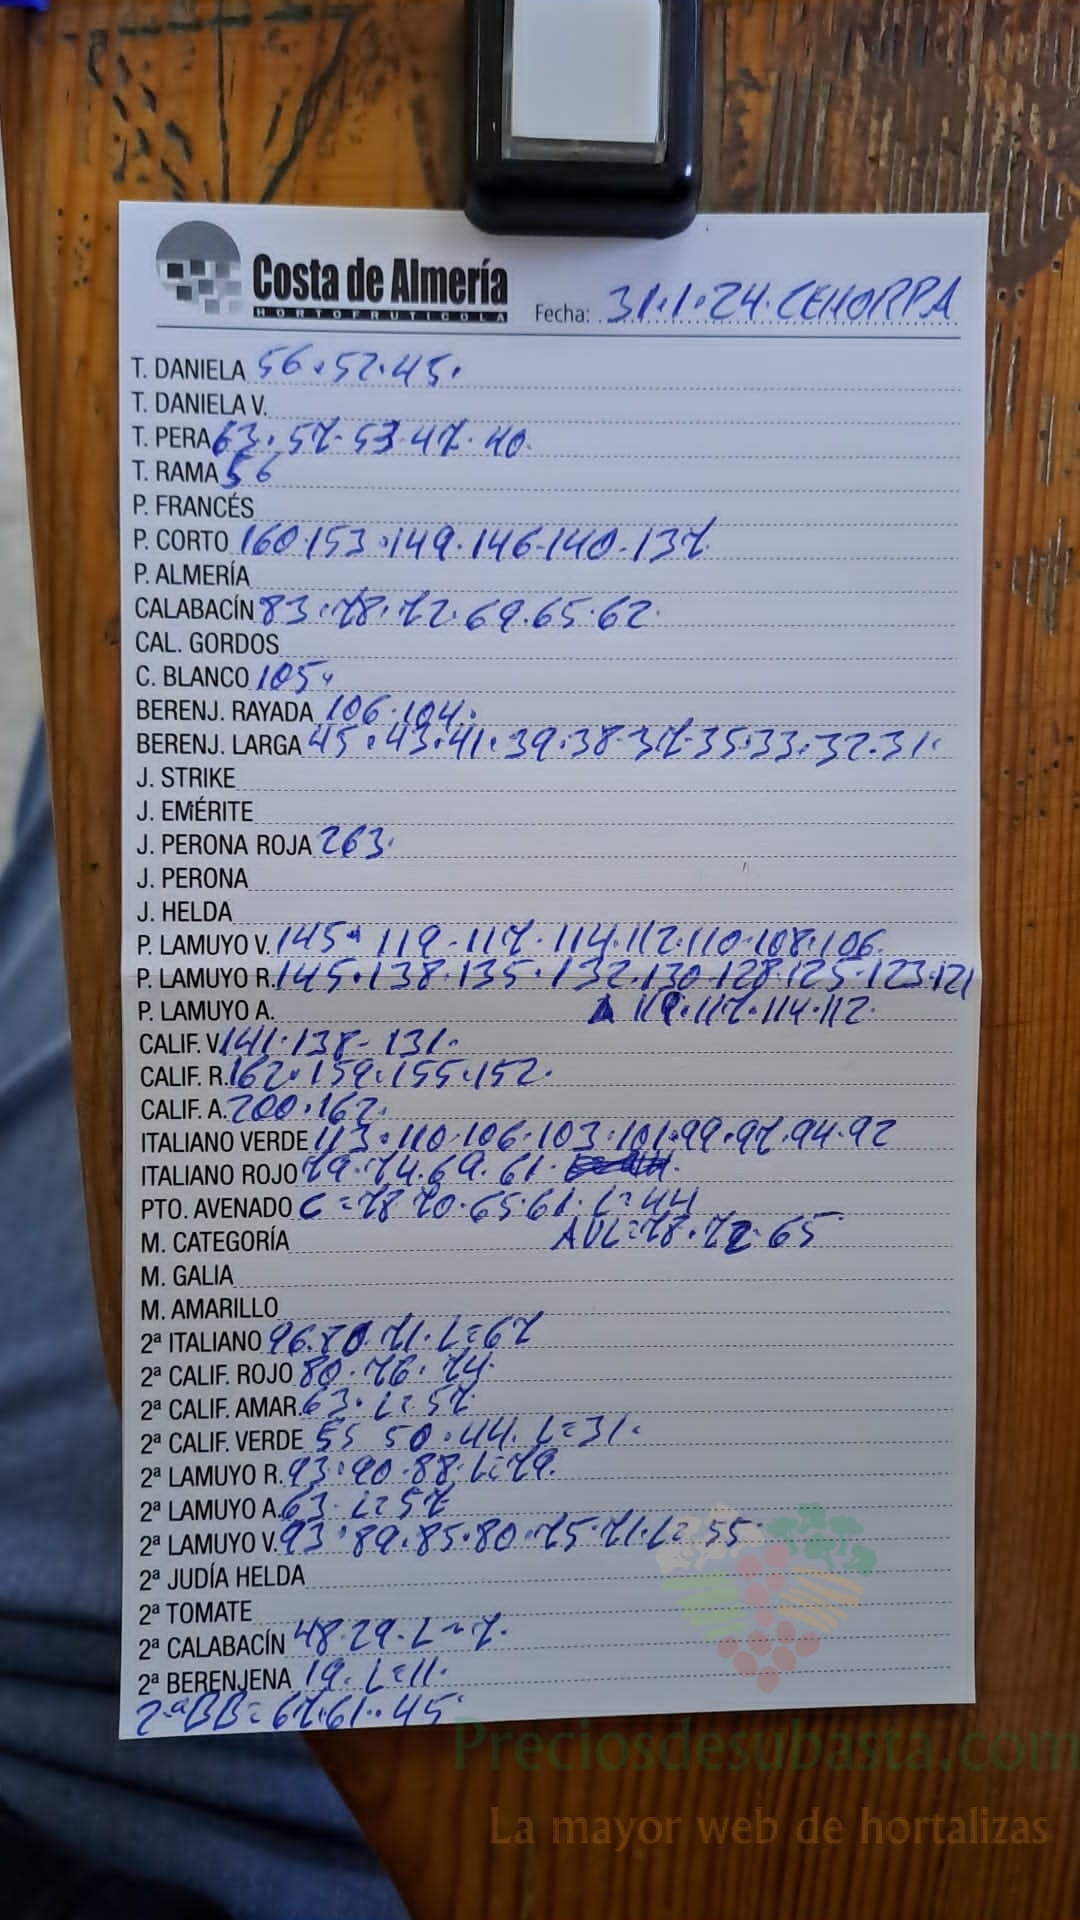 Costa de Almería
HORTOFRUTICOLA
Fecha: 31.1.24. CEHORPA
T. DANIELA 56.52.45.
T. DANIELA V.
T. PERA 63.57.53.47.40.
T. RAMA 56
P. FRANCÉS
P. CORTO 160.153.149.146.140.137.
P. ALMERÍA
CALABACÍN 83.78.72.69.65.62.
CAL. GORDOS
C. BLANCO 105.
BERENJ. RAYADA 106.104.
BERENJ. LARGA 45.43.41.39.38.37.35.33.32.31.
J. STRIKE
J. EMÉRITE
J. PERONA ROJA 263.
J. PERONA
J. HELDA
P. LAMUYO V. 145. 119.117.114.112.110.108.106.
P. LAMUYO R. 145.138.135.132.130.128.125.123.121
P. LAMUYO A. 119.117.114.112.
CALIF. V. 141.138-131.
CALIF. R. 162.159.155.152.
CALIF. A. 200.162.
ITALIANO VERDE 113.110.106.103.101.99.97.94.92
ITALIANO ROJO 79.74.69.61.
PTO. AVENADO C=78 70.65.61. L=44
M. CATEGORÍA AVL=78.72.65
M. GALIA
M. AMARILLO
2ª ITALIANO 96.80.71. L=67
2ª CALIF. ROJO 80.76.74.
2ª CALIF. AMAR. 63. L=57.
2ª CALIF. VERDE 55 50.44. L=31.
2ª LAMUYO R. 93.90.88. L=79.
2ª LAMUYO A. 63. L=57
2ª LAMUYO V. 93.89.85.80.75.71. L=55.
2ª JUDÍA HELDA
2ª TOMATE
2ª CALABACÍN 48.29. L=7.
2ª BERENJENA 19. L=11.
2ªBB=67.61..45.
Preciosdesubasta.com
La mayor web de hortalizas